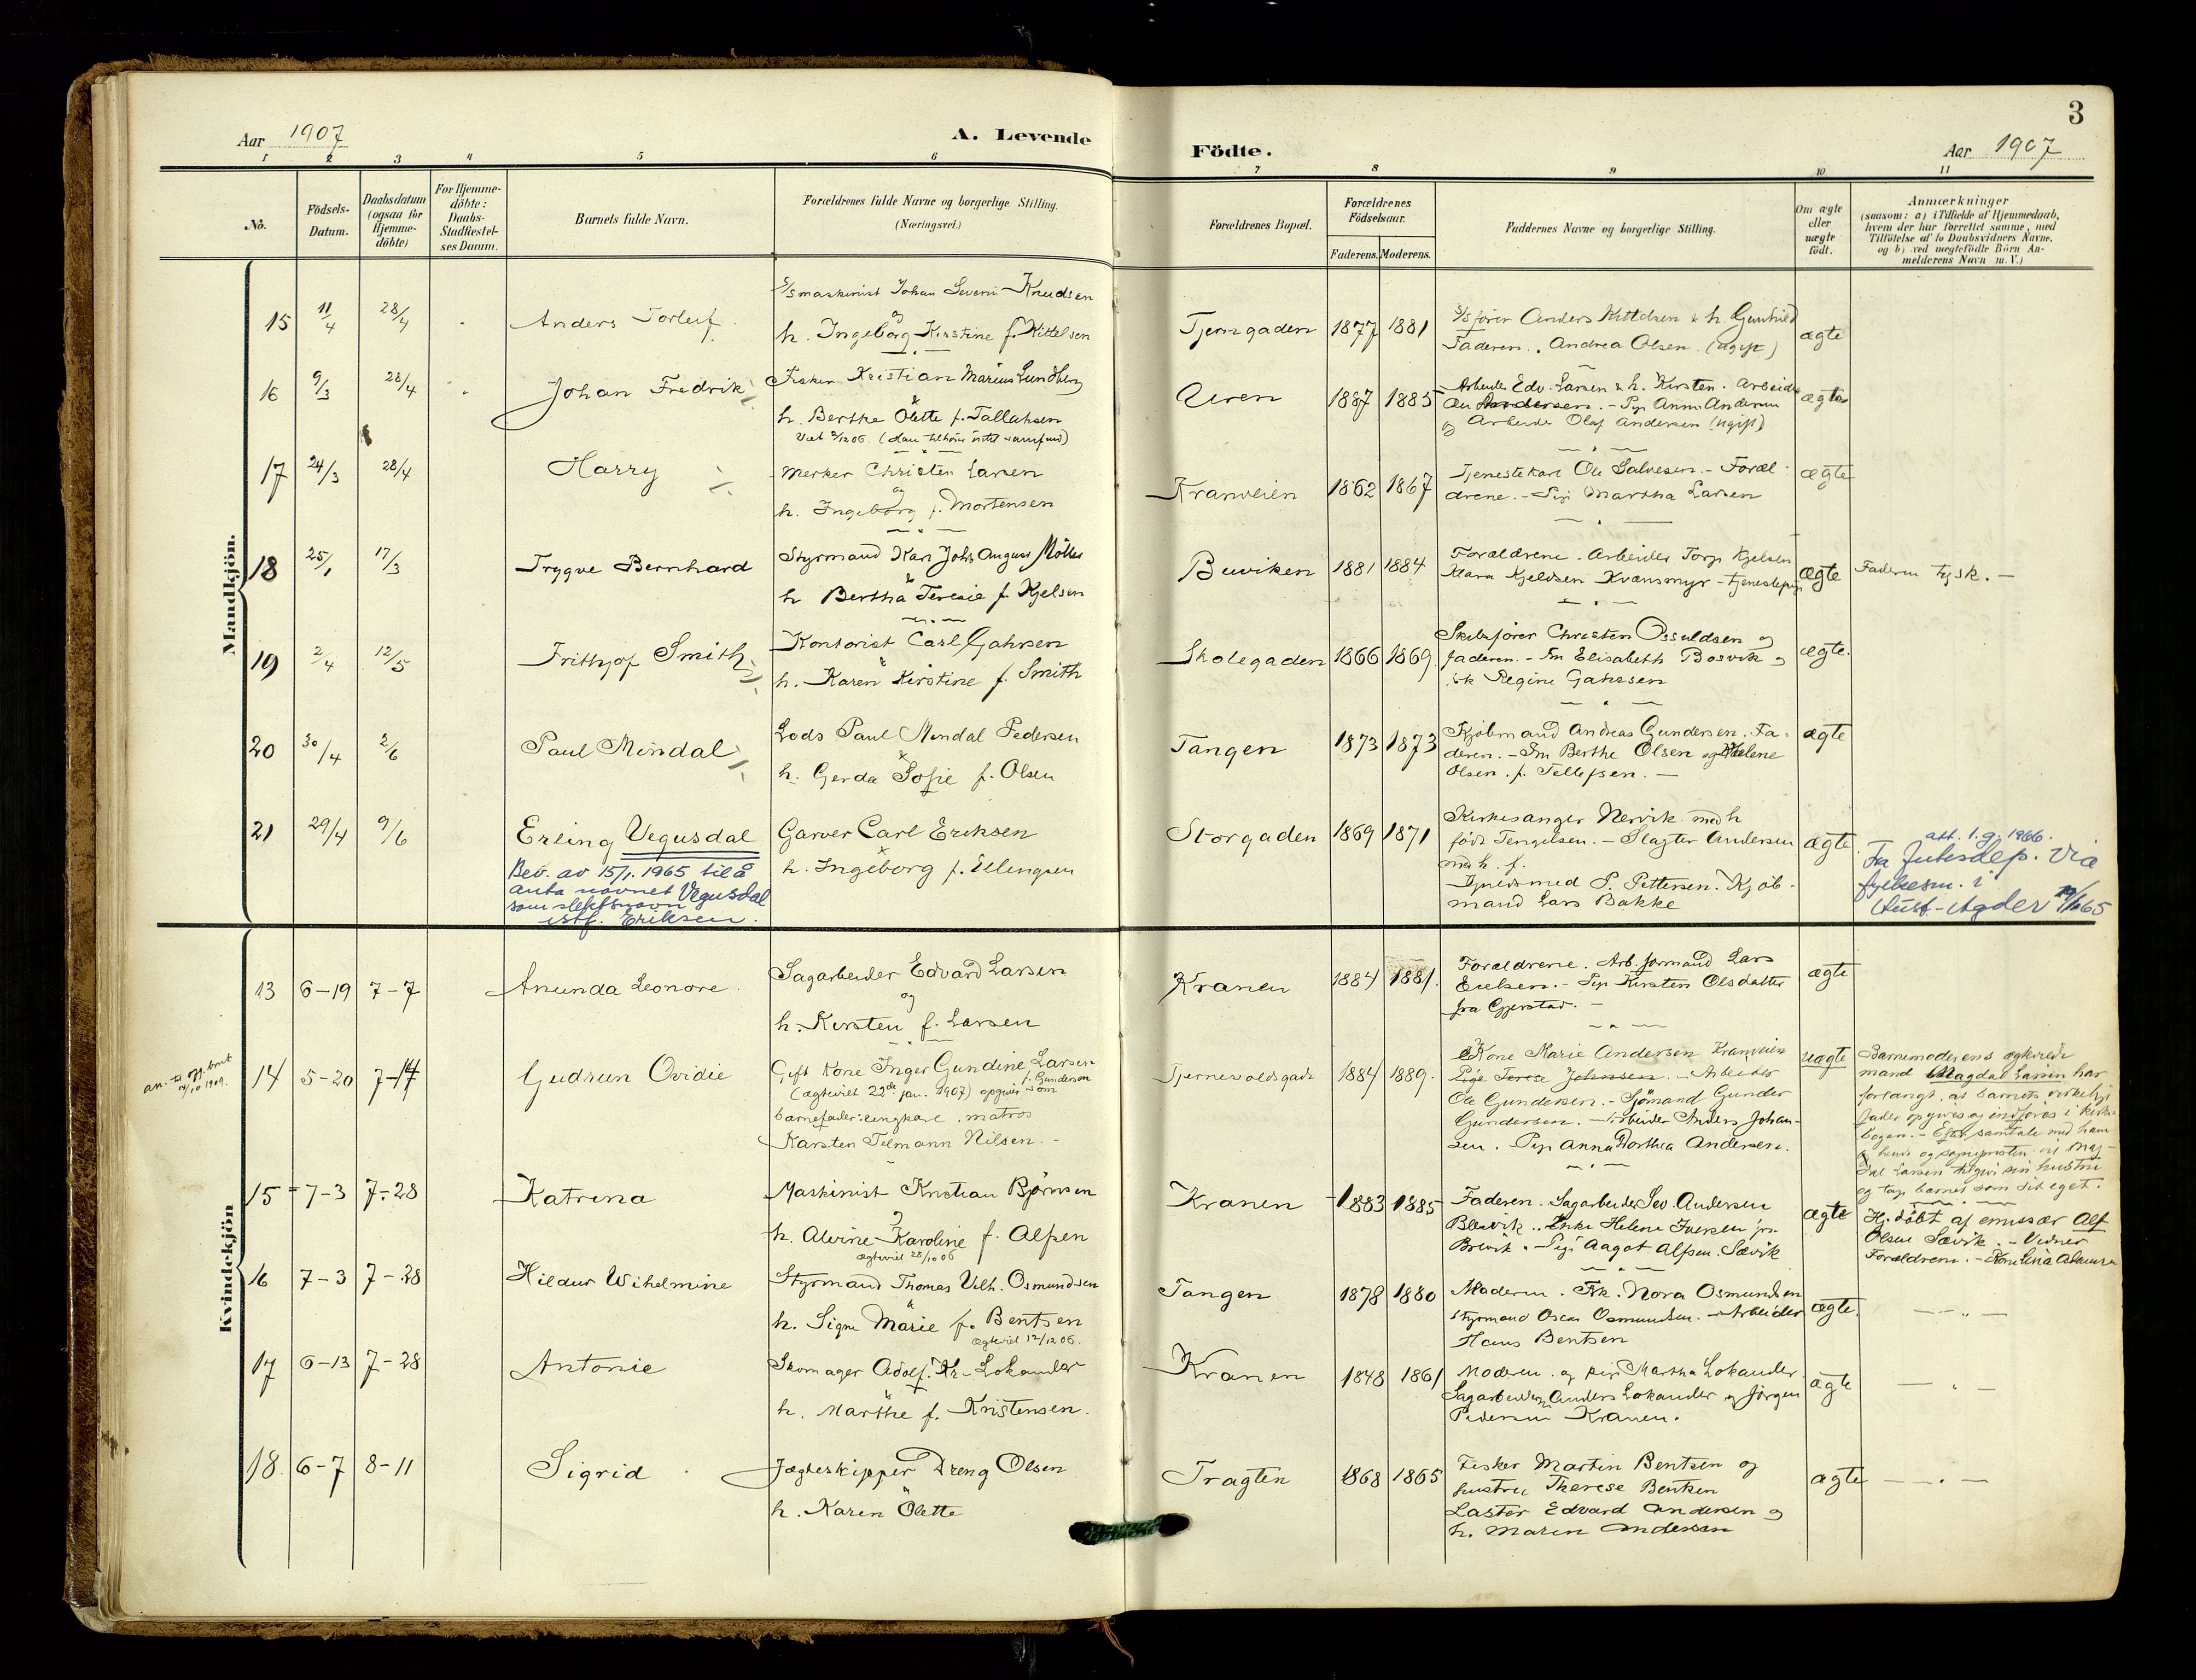 3
Aar 1907
A. Levende
Födte.
Aar 1907
1 2 3 4 5 6 7 8 9 10 11
No.
Födsels-
Datum.
Daabsdatum
(ogsaa for
Hjemme-
döbte)
For Hjemme-
döbte:
Daabs-
Stadfæstel-
ses Datum.
Barnets fulde Navn.
Forældrenes fulde Navne og borgerlige Stilling.
(Næringsvei.)
Forældrenes Bopæl.
Forældrenes
Födselsaar.
Faderens. Moderens.
Faddernes Navne og borgerlige Stilling.
Om ægte
eller
uægte
födt.
Anmærkninger
(saasom: a) i Tilfælde af Hjemmedaab,
hvem der har forrettet samme, med
Tilföielse af to Daabsvidners Navne,
og b) ved uægtefödte Börn An-
melderens Navn m. V.)
Mandkjön.
15 11/4 28/4 Anders Torleif
S/S maskinist Johan Severin Knudsen
og
h. Ingeborg Kirstine f. Kittelsen
Tjerngaden 1877 1881
S/S fører Anders Kittelsen & h. Gunhild
Faderen. Andrea Olsen (ugift)
ægte
16 9/3 28/4 Johan Fredrik
Fisker Kristian Marius Lundberg
&
h. Berthe Olette f. Tallaksen
Uren 1887 1885
Arbeider Edv. Larsen & h. Kirsten. Arbeider
Andersen. - Pige Anna Andersen
og Arbeider Olaf Andersen (ugift)
ægte
17 24/3 28/4 Harry
Merker Christen Larsen
og
h. Ingeborg f. Mortensen
Kranveien 1862 1867
Tjenestekarl Ole Salvesen. - Foræl-
drene. - Pige Martha Larsen
ægte
18 25/1 17/3 Trygve Bernhard
Styrmand Karl Johs August Möller
&
h Bertha Teresie f. Kjelsen
Buviken 1881 1884
Forældrene. Arbeider Torge Kjelsen
Klara Kjeldsen Kvænsmyr - tjenestepige
ægte
Faderen tysk. -
19 2/4 12/5 Frithjof Smith
Kontorist Carl Gahrsen
&
h. Karen Kirstine f. Smith
Skolegaden 1866 1869
Skibsfører Christen Osuldsen og
faderen. - Fru Elisabeth Bosvik og
Regine Gahrsen
ægte.
20 30/4 2/6 Paul Mindal
Lods Paul Mindal Pedersen
&
h. Gerda Sofie f. Olsen
Tangen 1873 1873
Kjøbmand Andreas Gundersen. Fa-
deren. - Fru Berthe Olsen og Helene
Olsen. f. Tellefsen. -
ægte
21 29/4 9/6 Erling Vegusdal
Bev. av 15/1. 1965 til å
anta navnet Vegusdal
som slektsnavn
istf. Eriksen.
Garver Carl Eriksen
&
h. Ingeborg f. Ellingsen
Storgaden 1869 1871
Kirkesanger Nervik med h
født Tengelsen. - Slagter Andersen
med h. f.
P. Pettersen. Kjøb-
mand Lars Bakke
ægte
att. 1.9.1966.
Fra Justisdep. via
fylkesm. i
Aust-Agder
Kvindekjön
13 6-19 7-7 Anunda Leonore.
Sagarbeider Edvard Larsen
og
h. Kirsten f. Larsen
Kranen 1884 1881.
Forældrene. Arb. formand Lars
Eielsen. - Pige Kirsten Olsdatter
fra Gjerstad. -
ægte
14 5-20 7-14 Gudrun Ovidie
Gift Kone Inger Gundine Larsen
f. Gundersen
(ægteviet 22de jan. 1907) opgiver som
barnefader: ungkarl, matros
Karsten Tilmann Nilsen. -
Tjernevoldsgade 1884 1889.
Kone Marie Andersen Kranveien
Pige Terese Johnsen. - Arbeider
Ole Gundersen. - Sjømand Gunder
Gundersen. - Arbeider Anders Johan-
sen. Pige Anna Dorthea Andersen.
uægte
Barnemoderens ægteviede
mand Magdal Larsen har
forlangt, at barnets virkelige
fader opgives og indføres i kirke-
bogen. - Efter samtale med ham
dal Larsen tilgive sin hustru
og tage barnet som sit eget.
15 7-3 7-28 Katrina
Maskinist Kristian Bjørnsen
&
h. Alvine Karoline f. Alfsen
ægteviet 28/10 06
Kranen 1883 1885
Faderen. Sagarbeider Sev. Andersen
Blesvik. Enke Helene Iversen
Brevik. - Pige Aagot Alfsen. Sævik
ægte
Hj. döbt af emissær Alf
Olsen Sævik. - Vidner
Forældrene. -
16 7-3 7-28 Hildur Wilhelmine
Styrmand Thomas Vilh. Osmundsen
&
h. Signe Marie f. Bentsen
ægteviet 12/12 06.
Tangen 1878 1880
Moderen. Frk. Nora Osmundsen
styrmand Oscar Osmundsen. - Arbeider
Hans Bentsen
ægte.
17 6-13 7-28 Antonie
Skomager Adolf Kr. Lokander
&
h. Marthe f. Kristensen.
Kranen 1848 1861
Moderen og pige Martha Lokander
Sagarbeider Anders Lokander og Jørgen
Pedersen Kranen.
ægte
18. 6-7 8-11 Sigrid
Jægteskipper Dreng Olsen
&
h. Karen Olette
Tragten 1868 1865
Fisker Martin Bentsen og
hustru Therese Bentsen
Laster Edvard Andersen og
h. Maren Andersen
ægte